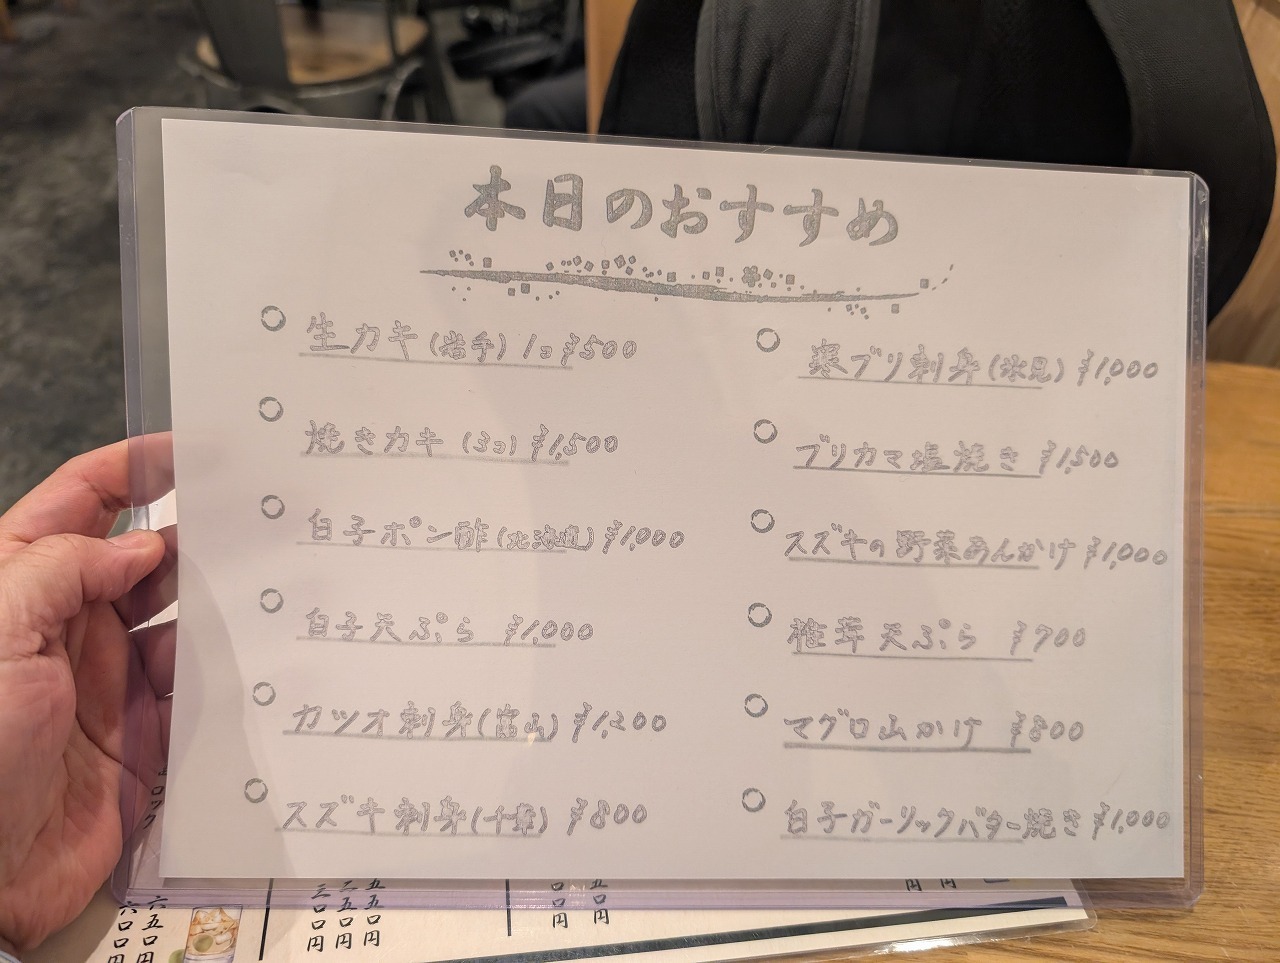 本日のおすすめ
生カキ(岩手) 1コ ¥500
焼きカキ (3コ) ¥1,500
白子ポン酢(北海道) ¥1,000
白子天ぷら ¥1,000
カツオ刺身(富山) ¥1,200
スズキ刺身(千葉) ¥800
寒ブリ刺身(氷見) ¥1,000
ブリカマ塩焼き ¥1,500
スズキの野菜あんかけ ¥1,000
椎茸天ぷら ¥700
マグロ山かけ ¥800
白子ガーリックバター焼き ¥1,000
五五〇円
五〇円
六五〇円
六〇〇円